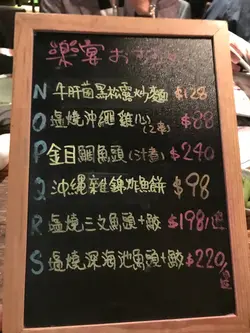 樂宴おすすめ
N 牛肝菌黑松露炒麵 $128
O 塩燒沖繩雞心(2串) $88
P 金目鯛魚頭(汁煮) $240
Q 沖縄雜錦炸魚餅 $98
R 塩燒三文魚頭+鮫 $198/1边
S 塩燒深海池魚頭+鮫 $220/1边